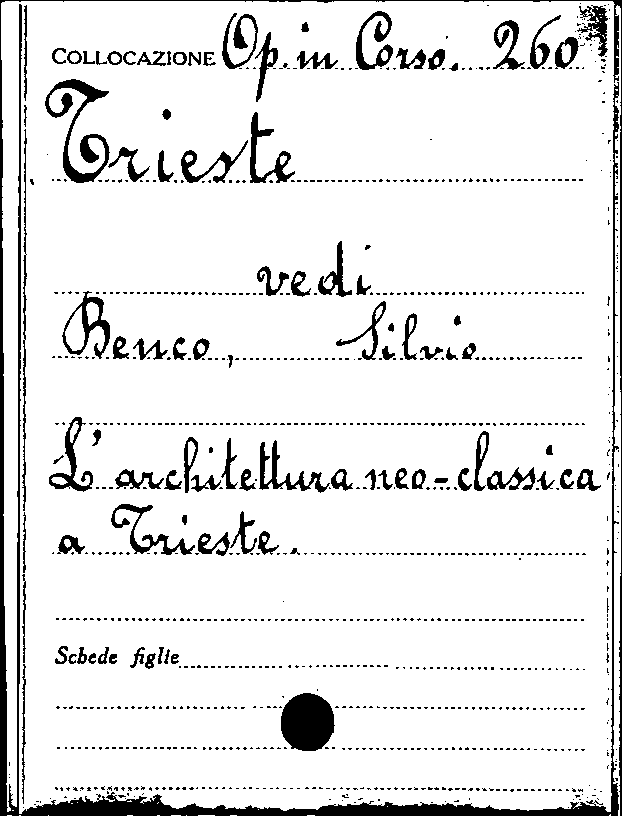 COLLOCAZIONE Op. in Corso. 260
Trieste
vedi
Benco, Silvio
L'architettura neo-classica
a Trieste.
Schede figlie